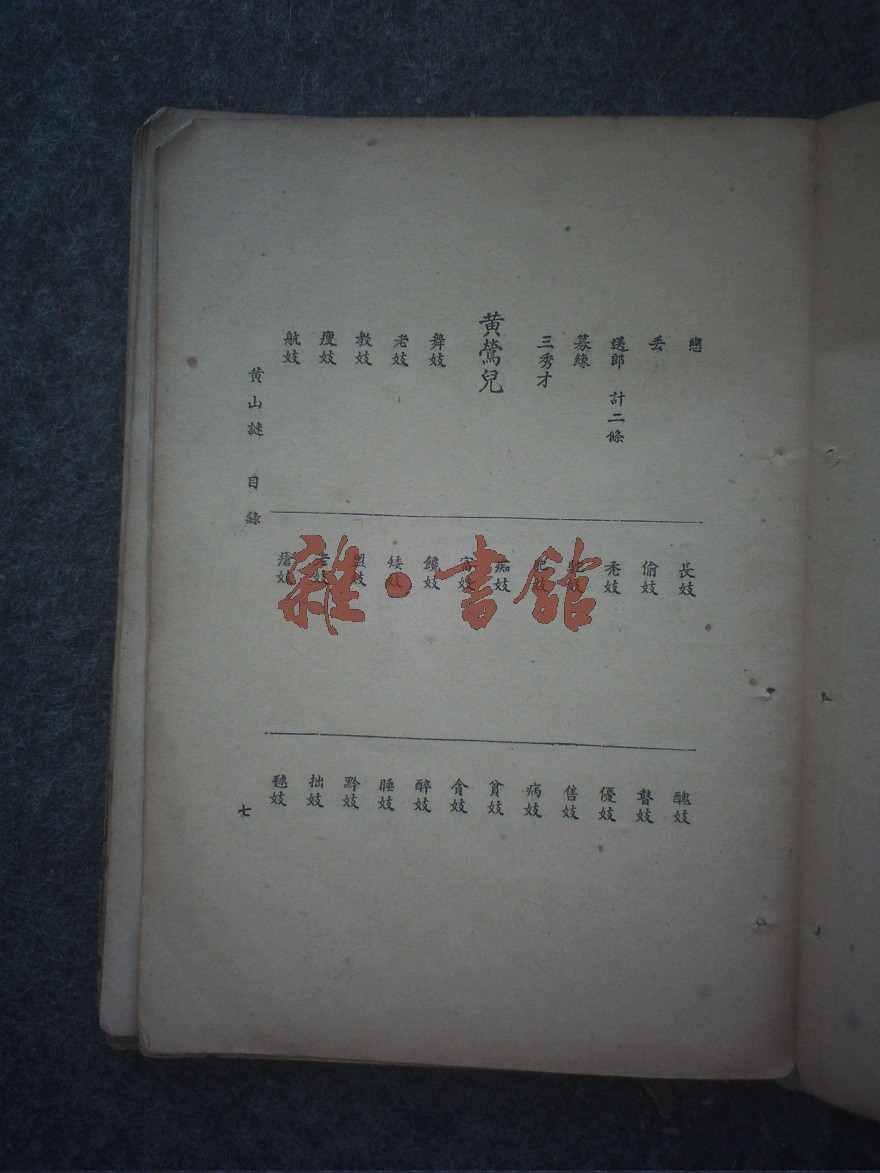 戀
丟
送郎 計二條
募緣
三秀才
黃鶯兒
舞妓
老妓
教妓
瘦妓
航妓
長妓
偷妓
禿妓
肥妓
痴妓
饞妓
矮妓
盟妓
瘡妓
醜妓
瞽妓
優妓
售妓
病妓
貧妓
貪妓
醉妓
睡妓
黔妓
拙妓
黃山謎 目錄
七
雜·書館